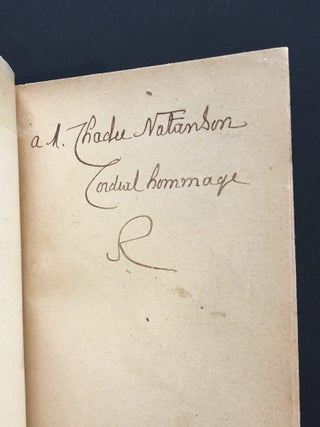 a M. Thadée Natanson
Cordial hommage
R